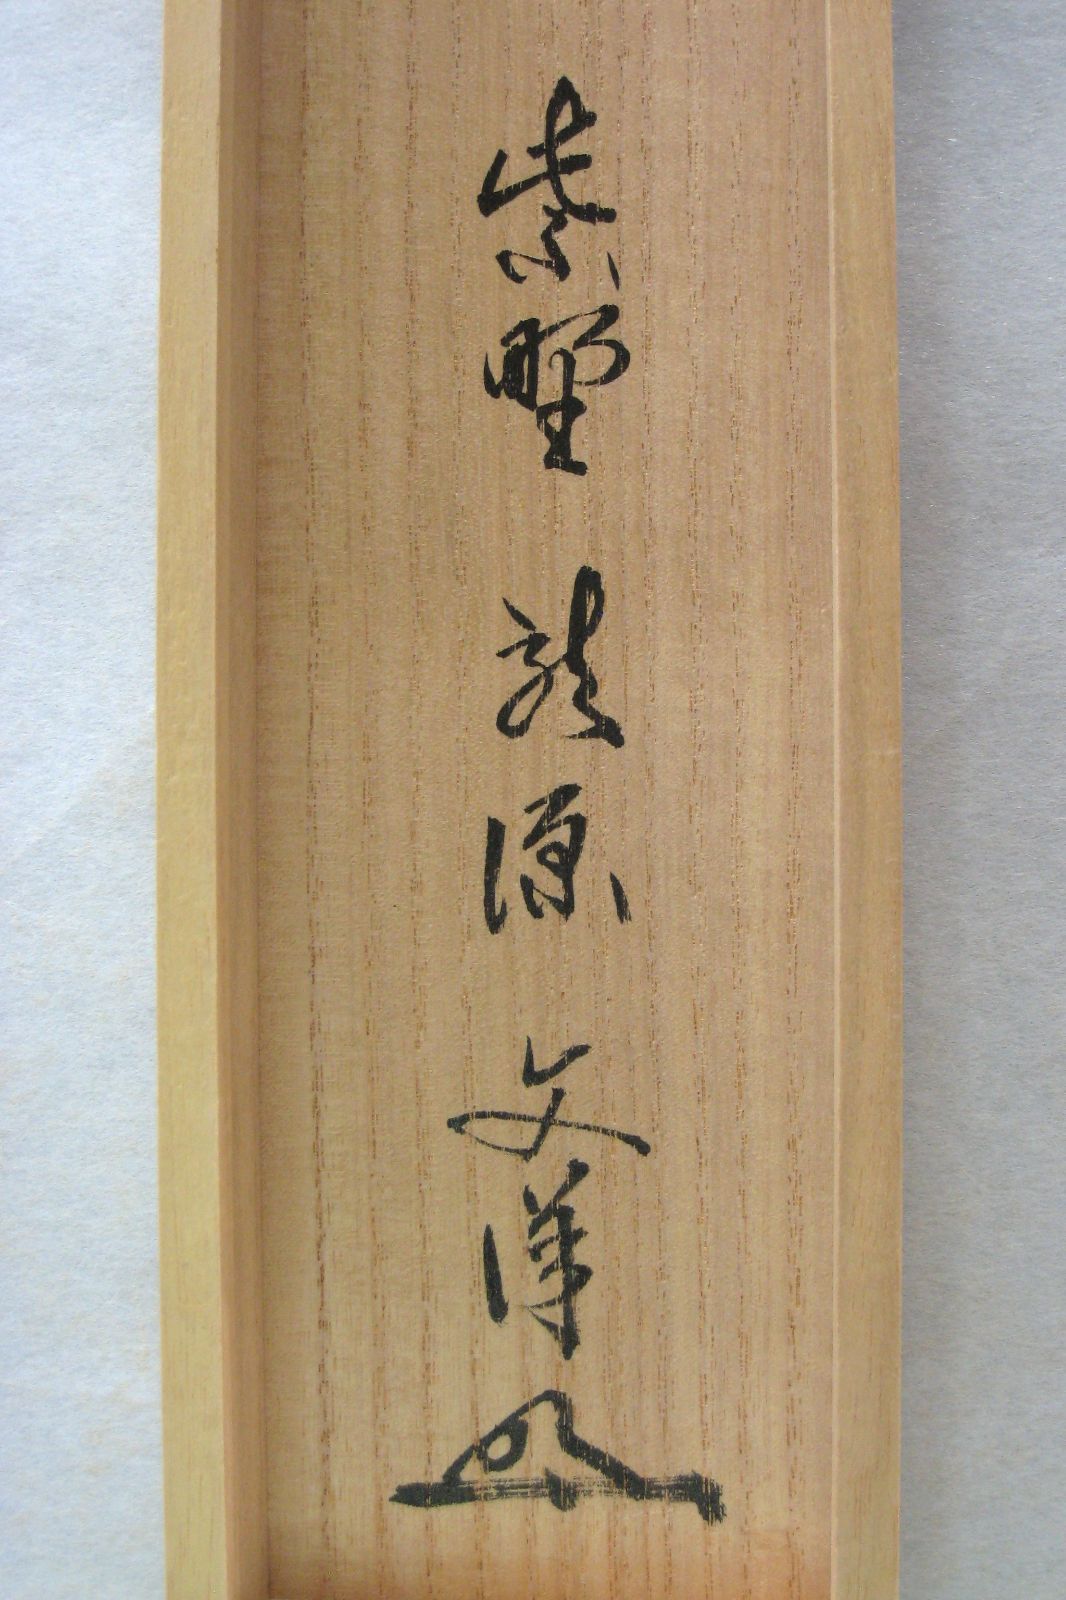 紫野 龍源 文洋